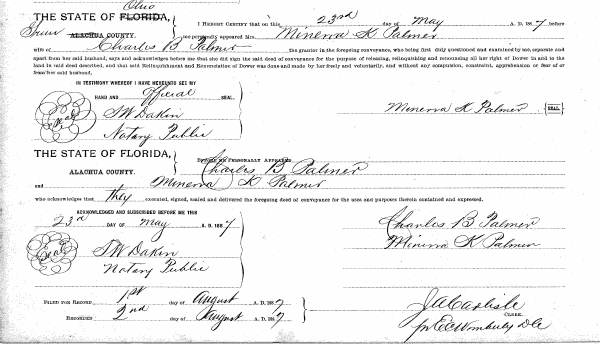 Ohio
THE STATE OF FLORIDA,
ALACHUA COUNTY.
I HEREBY CERTIFY that on this 23rd day of May A. D. 1887 before
me personally appeared Mrs. Minerva K Palmer
wife of Charles B Palmer the grantor in the foregoing conveyance, who being first duly questioned and examined by me, separate and
apart from her said husband, says and acknowledges before me that she did sign the said deed of conveyance for the purpose of releasing, relinquishing and renouncing all her right of Dower in and to the
land in said deed described, and that said Relinquishment and Renunciation of Dower was done and made by her freely and voluntarily, and without any compulsion, constraint, apprehension or fear of or
from her said husband,
IN TESTIMONY WHEREOF I HAVE HEREUNTO SET MY
HAND AND official SEAL,
Seal
SW Dakin
Notary Public
Minerva K Palmer SEAL.
THE STATE OF FLORIDA,
ALACHUA COUNTY.
BEFORE ME PERSONALLY APPEARED
Charles B Palmer
and Minerva K Palmer
who acknowledges that they executed, signed, sealed and delivered the foregoing deed of conveyance for the uses and purposes therein contained and expressed.
ACKNOWLEDGED AND SUBSCRIBED BEFORE ME THIS
23d DAY OF May A. D. 1887
Seal
SW Dakin
Notary Public
Charles B Palmer
Minerva K Palmer
FILED FOR RECORD 1st day of August A. D. 1887
RECORDED 2nd day of August A. D. 1887
J A Carlisle
CLERK.
pr E C Wimberly D C